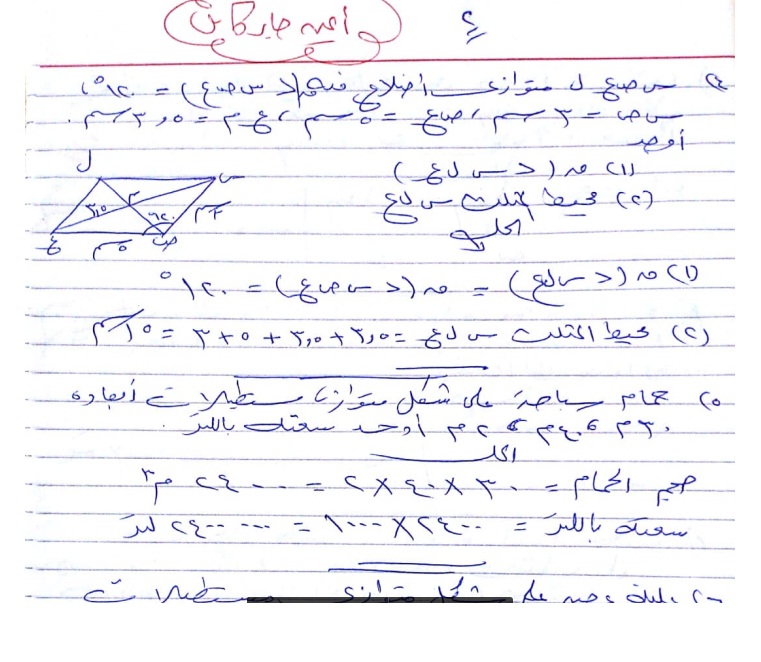 ٤
٤) س ص ع ل متوازى أضلاع فيه ق(د س ص ع) = ١٢٠°،
س ص = ٣ سم، ص ع = ٥ سم، ع م = ٣,٥ سم.
أوجد
(١) ق (د س ل ع)
(٢) محيط المثلث س ل ع
الحل
ل س
٣,٥ م ١٢٠ ٣ سم
ع ٥ سم ص
(١) ق (د س ل ع) = ق (د س ص ع) = ١٢٠°
(٢) محيط المثلث س ل ع = ٣,٥ + ٣,٥ + ٥ + ٣ = ١٥ سم
٥) حمام سباحة على شكل متوازى مستطيلات أبعاده
٣٠ م، ٤٠ م، ٢ م أوجد سعته باللتر.
الحل
حجم الحمام = ٣٠ × ٤٠ × ٢ = ٢٤٠٠ م٣
سعته باللتر = ٢٤٠٠ × ١٠٠٠ = ٢٤٠٠٠٠٠ لتر
٦) علبة على شكل متوازى مستطيلات